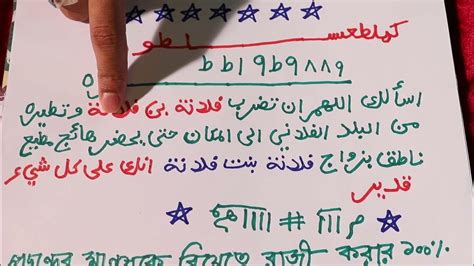 ططا9ط9۸۸9
اسألك اللهم ان تضرب فلانة بن فلانة و تطيره
من البلد الفلاني الى المكان حتى يحضر هائج مطيع
ناطق بزواج فلانة بنت فلانة انك على كل شيء
قدير
# ااام
মানুষকে বিয়েতে রাজী করার ১০০%